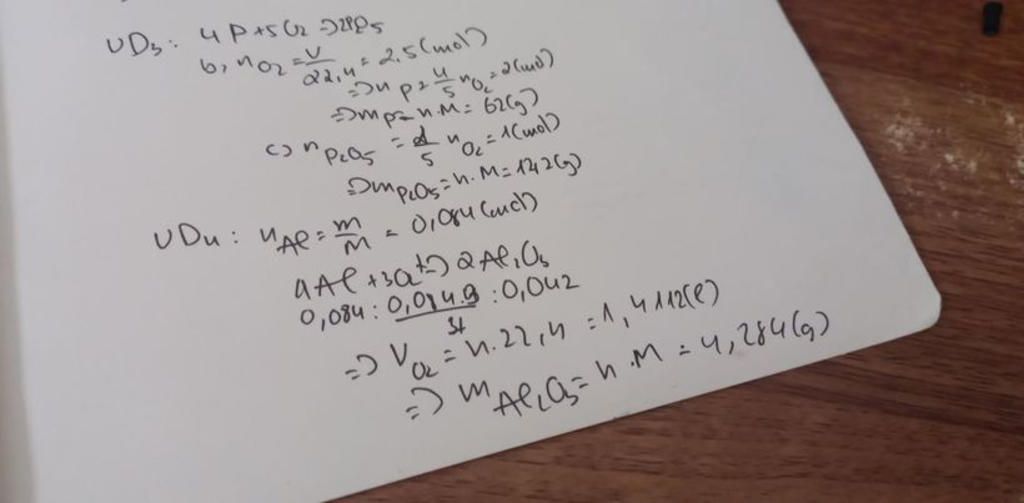 VD3: 4P+5O2 => 2P2O5
b, nO2 = V/22,4 = 2.5 (mol)
=> nP = 4/5 nO2 = 2 (mol)
=> mP = n.M = 62(g)
c) nP2O5 = 2/5 nO2 = 1 (mol)
=> mP2O5 = n.M = 142(g)
VD4: nAl = m/M = 0,084 (mol)
4Al + 3O2 t-> 2Al2O3
0,084 : : 0,042
=> VO2 = n.22,4 = 1,4112(l)
=> mAl2O3 = n.M = 4,284(g)